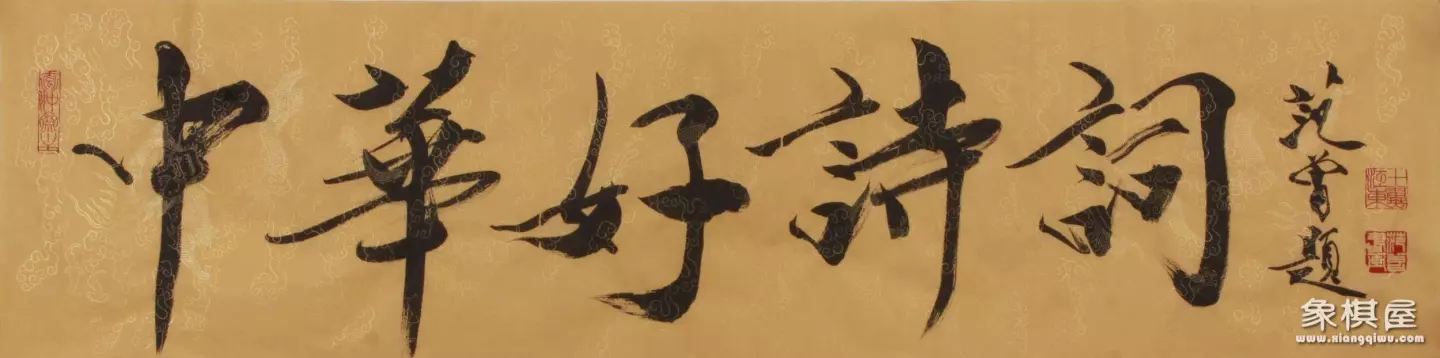 中華好詩詞
范曾題
象棋屋
www.xiangqiwu.com